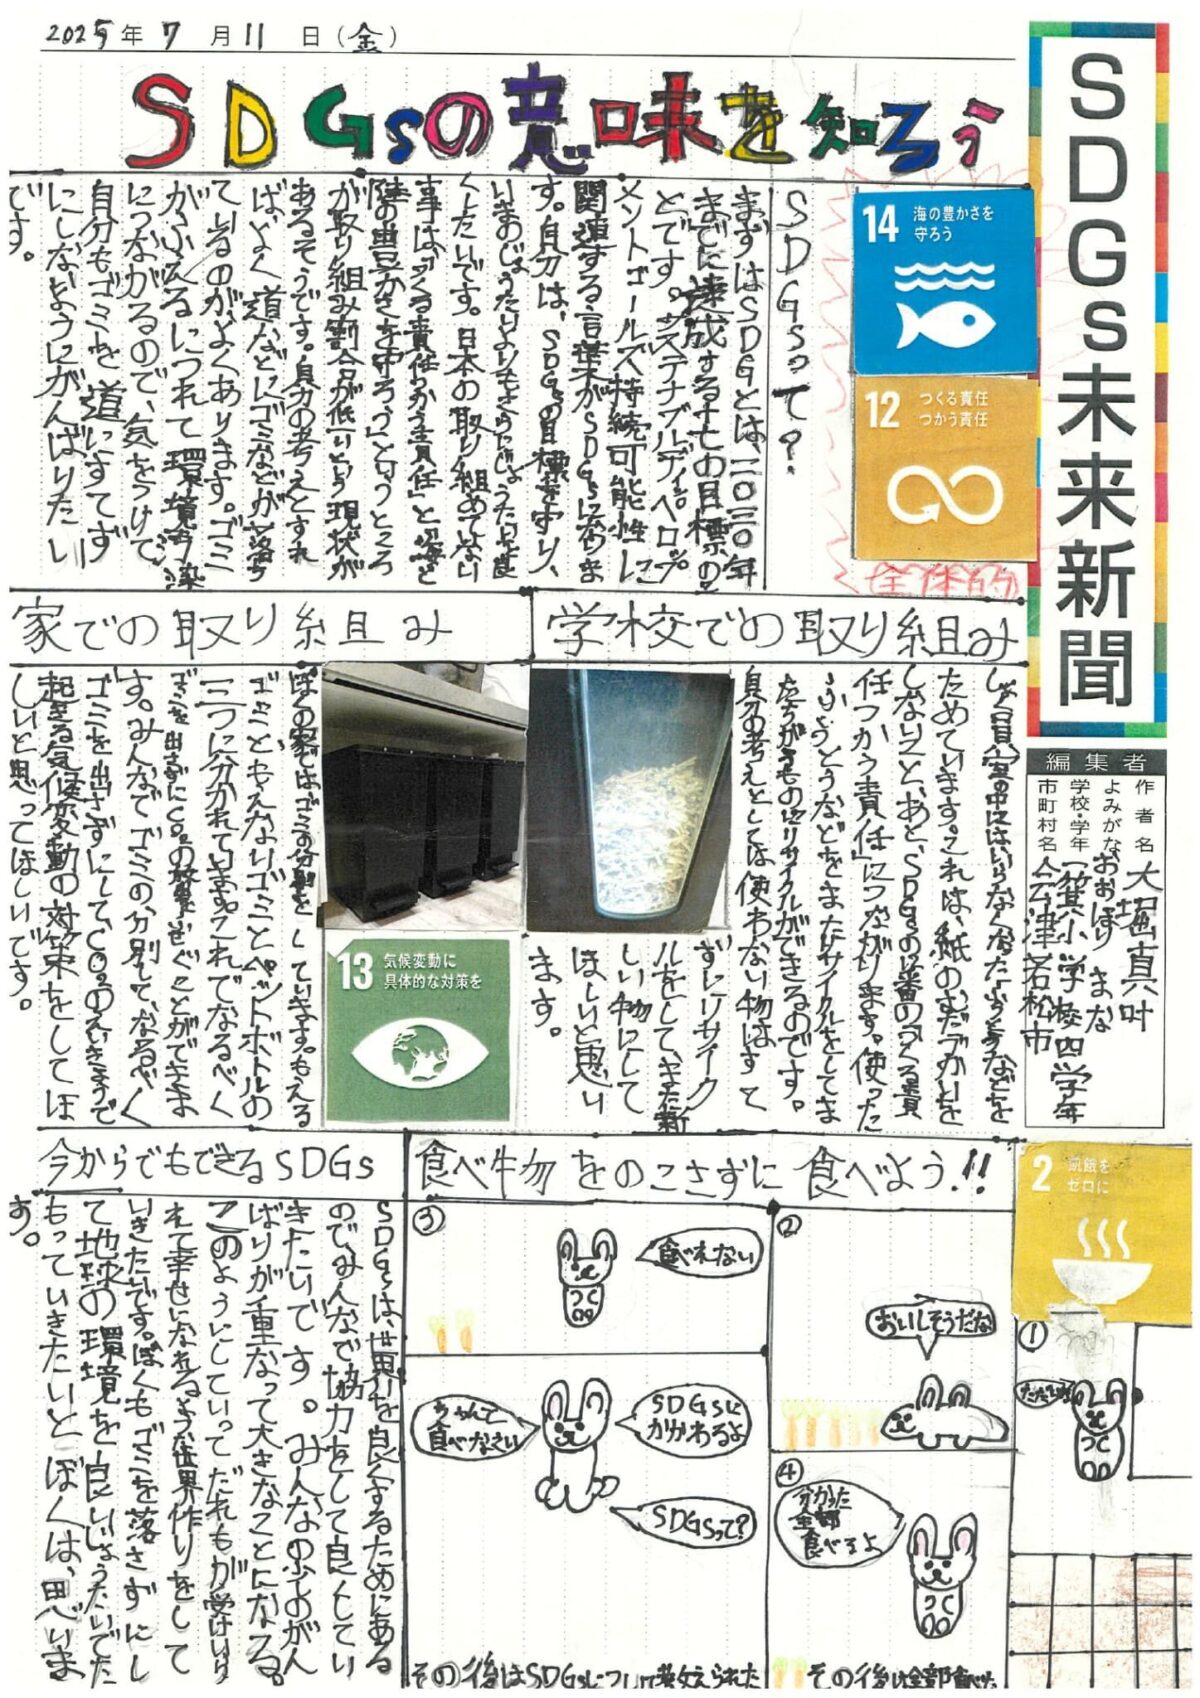 2025年 7月11日(金)
SDGs未来新聞
SDGsの意味を知ろう
編集者
作者名 大堀真叶
よみがな おおぼり まな
学校・学年 一箕小学校四学年
市町村名 会津若松市
14 海の豊かさを
守ろう
12 つくる責任
つかう責任
全体的
SDGsって?
まずはSDGとは、二〇三〇年
までに達成する十七の目標のこ
とです。サステナブルディベロップ
メントゴールズ持続可能性に
関連する言葉がSDGsになりま
す。自分は、SDGsの目標を守り、
くしたいです。日本の取り組めてない
事は「つくる責任つかう責任」と「海と
陸の豊かさを守ろう」というところ
が取り組み割合が低いという現状が
あるそうです。自分の考えとすれ
ば、よく道などにゴミなどが落ち
ているのが、よくあります。ゴミ
がふえるにつれて環境汚染
につながるので、気をつけて
自分もゴミを道にすてず
にしないようにがんばりたい
です。
学校での取り組み
ためています。これは、紙のむだづかいを
しなりこと、あと、SDGsの12番のつくる責
任つかう責任」につながります。使った
自分の考えとしては使わない物はすて
ずにリサイク
ルをして、また新
しい物にして
ほしいと思い
ます。
家での取り組み
ぼくの家ではゴミの分別をしています。もえる
ゴミともえないゴミとペットボトルの
三つに分かれています。これでなるべく
ゴミを出さずにCO₂の放出をふせぐことができま
す。みんなでゴミの分別して、なるべく
ゴミを出さずにして、CO₂のえいきょうで
起きる気候変動の対策をしてほ
しいと思ってほしいです。
13 気候変動に
具体的な対策を
食べ物をのこさずに食べよう!!
2 飢餓を
ゼロに
①
②
おいしそうだな
③
食べれない
SDGsに
かかわるよ
ちゃんと
食べなさい
SDGsって?
その後はSDGsについて教えられた
④
分かった
全部
食べるよ
その後は全部食べた
今からでもできるSDGs
SDGsは、世界を良くするためにある
のでみんなで協力をして良くしてい
きたいです。みんなの少しのがん
ばりが重なって大きなことになる。
このようにしていってだれもが受けいり
れて幸せになれるような世界作りをして
いきたいです。ぼくもゴミを落さずにし
て地球の環境を良いじょうたいでた
もっていきたいとぼくは、思いま
す。